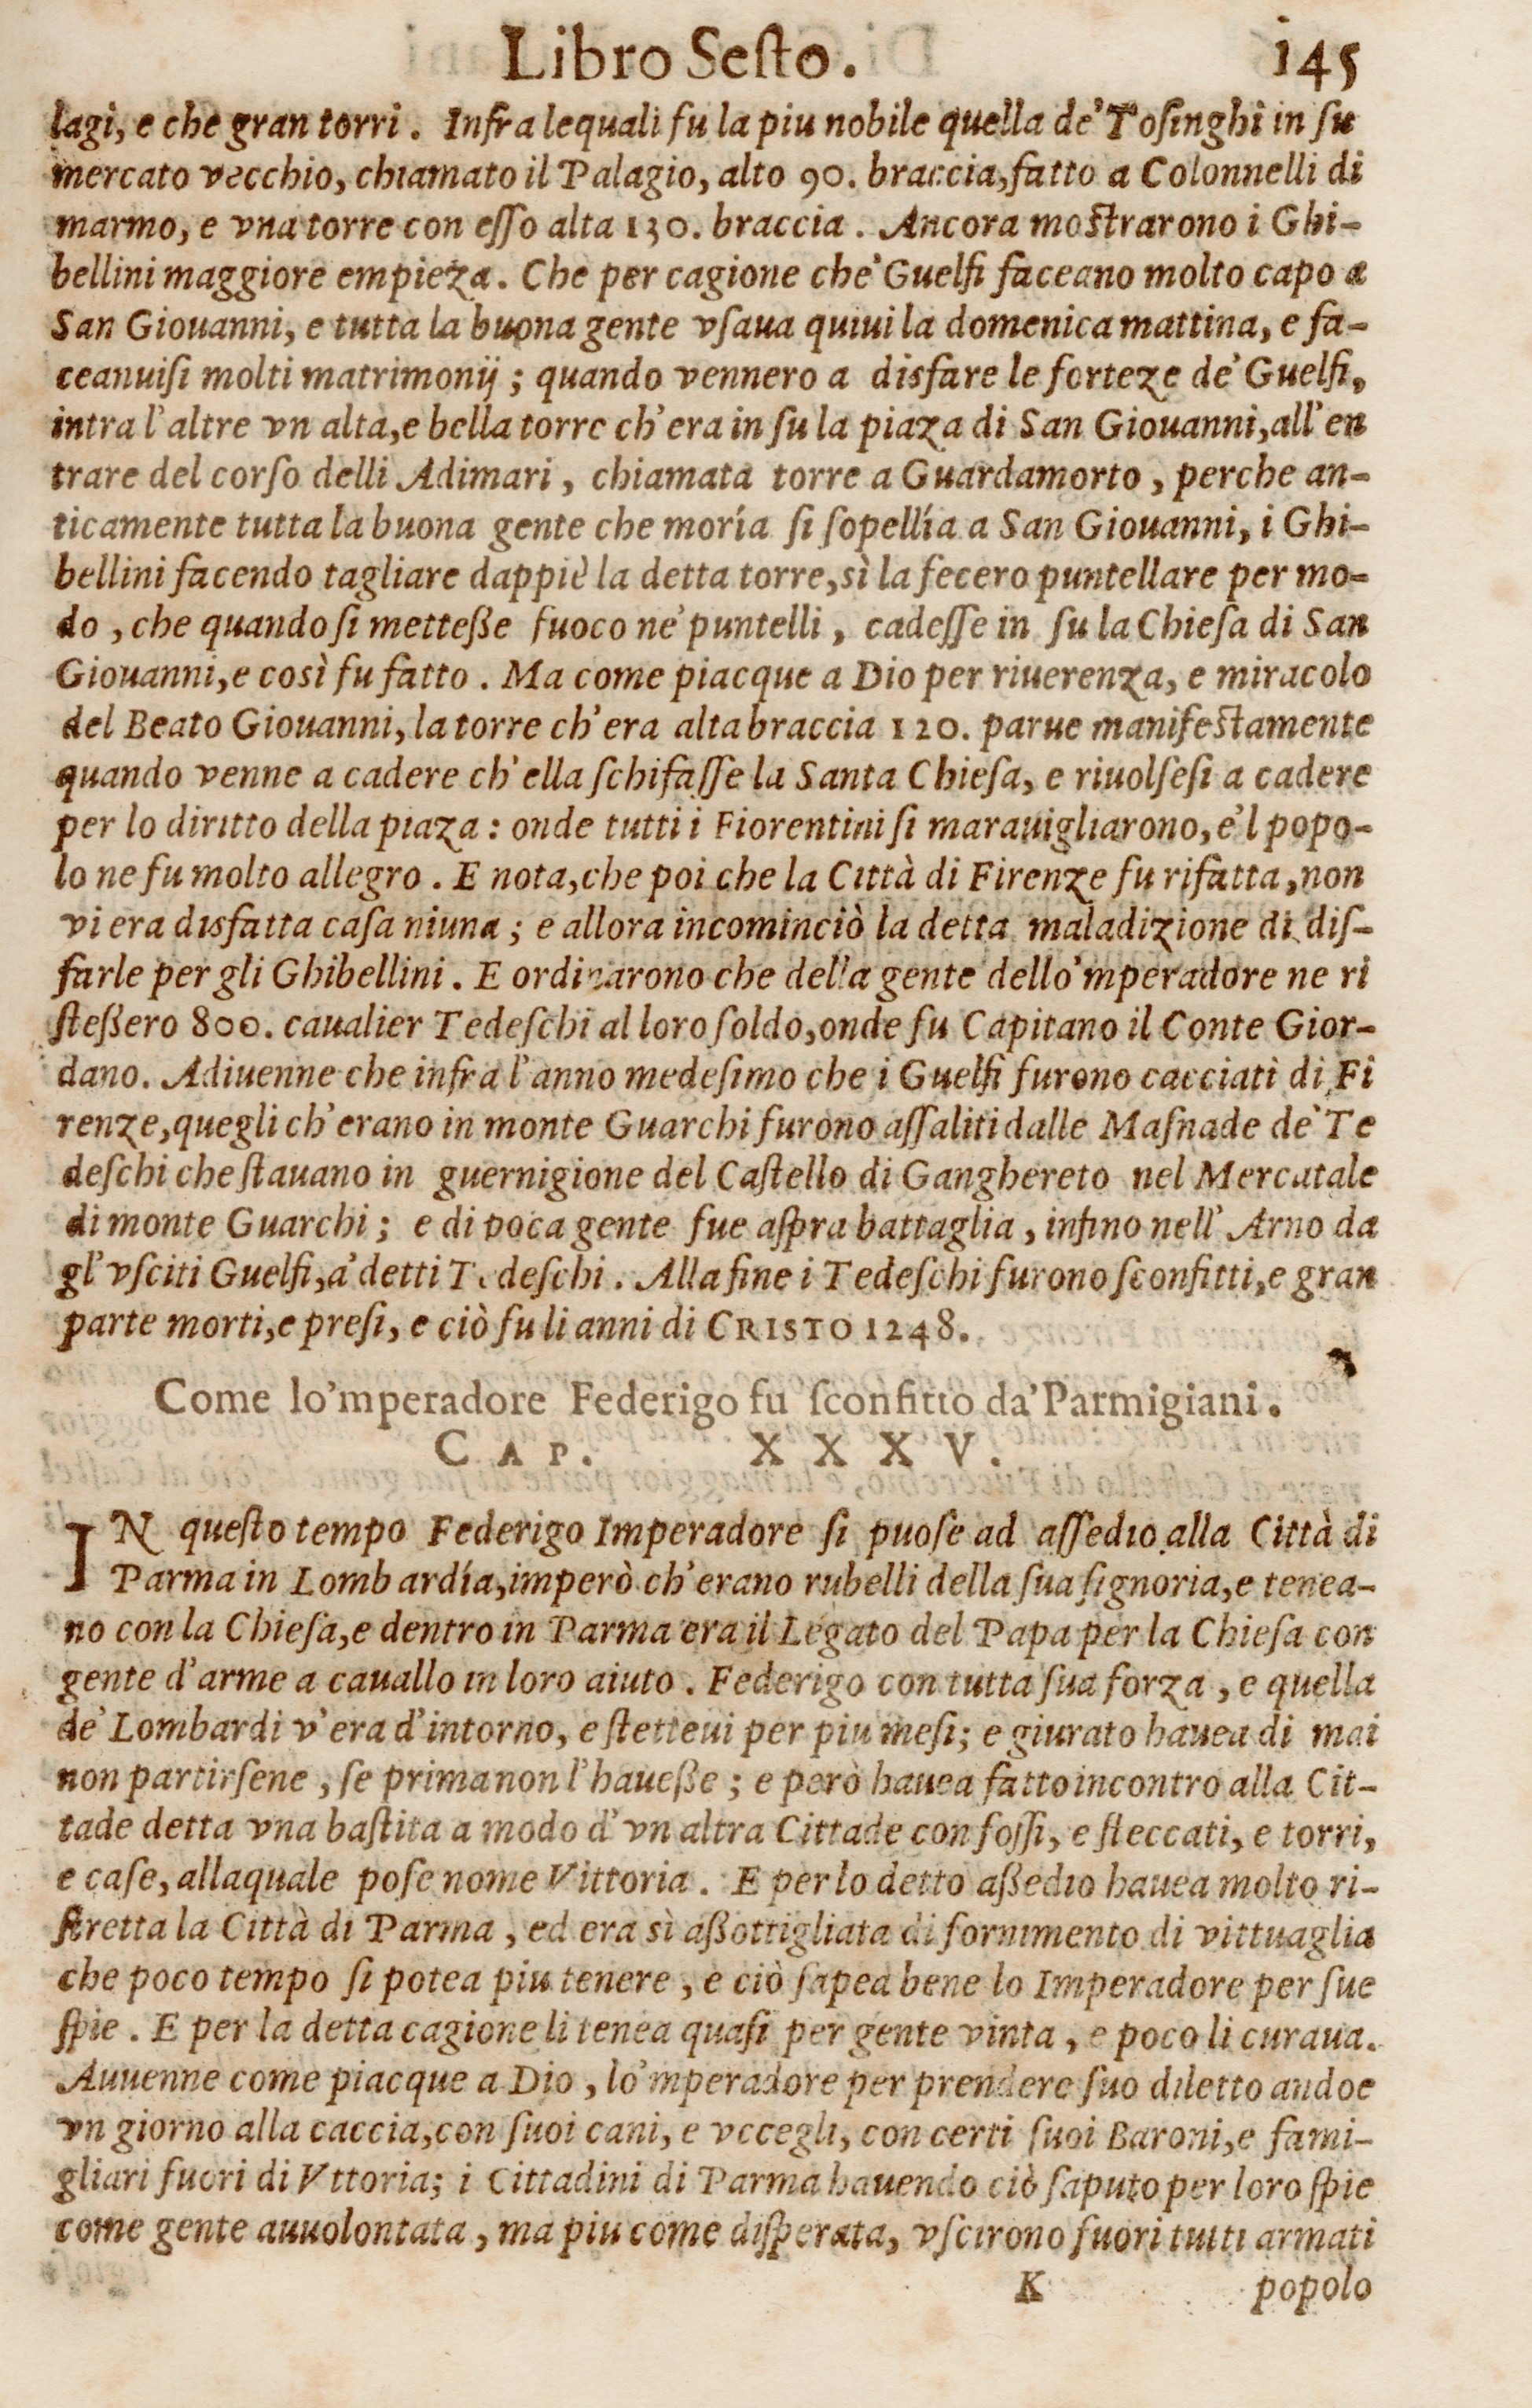 Libro Seſto. 145
lagi, e che gran torri. Infra lequali fu la piu nobile quella de' Toſinghi in ſu
mercato vecchio, chiamato il Palagio, alto 90. braccia, fatto a Colonnelli di
marmo, e vna torre con eſſo alta 130. braccia. Ancora moſtrarono i Ghi-
bellini maggiore empieza. Che per cagione che' Guelfi faceano molto capo a
San Giouanni, e tutta la buona gente vſaua quiui la domenica mattina, e fa-
ceanuiſi molti matrimonij; quando vennero a disfare le forteze de' Guelfi,
intra l'altre vn alta, e bella torre ch'era in ſu la piaza di San Giouanni, all'en
trare del corſo delli Adimari, chiamata torre a Guardamorto, perche an-
ticamente tutta la buona gente che moría ſi ſopellía a San Giouanni, i Ghi-
bellini facendo tagliare dappiè la detta torre, sì la fecero puntellare per mo-
do, che quando ſi metteße fuoco ne' puntelli, cadeſſe in ſu la Chieſa di San
Giouanni, e così fu fatto. Ma come piacque a Dio per riuerenza, e miracolo
del Beato Giouanni, la torre ch'era alta braccia 120. parue manifeſtamente
quando venne a cadere ch'ella ſchifaſſe la Santa Chieſa, e riuolſeſi a cadere
per lo diritto della piaza: onde tutti i Fiorentini ſi marauigliarono, e'l popo-
lo ne fu molto allegro. E nota, che poi che la Città di Firenze fu rifatta, non
vi era disfatta caſa niuna; e allora incominciò la detta maladizione di diſ-
farle per gli Ghibellini. E ordinarono che della gente dello'mperadore ne ri
ſteßero 800. caualier Tedeſchi al loro ſoldo, onde fu Capitano il Conte Gior-
dano. Adiuenne che infra l'anno medeſimo che i Guelfi furono cacciati di Fi
renze, quegli ch'erano in monte Guarchi furono aſſaliti dalle Maſnade de' Te
deſchi che ſtauano in guernigione del Caſtello di Ganghereto nel Mercatale
di monte Guarchi; e di poca gente fue aſpra battaglia, infino nell'Arno da
gl'vſciti Guelfi, a' detti Tedeſchi. Alla fine i Tedeſchi furono ſconfitti, e gran
parte morti, e preſi, e ciò fu li anni di CRISTO 1248.
Come lo'mperadore Federigo fu ſconfitto da' Parmigiani.
CAP. XXXV.
IN queſto tempo Federigo Imperadore ſi puoſe ad aſſedio alla Città di
Parma in Lombardía, imperò ch'erano rubelli della ſua ſignoria, e tenea-
no con la Chieſa, e dentro in Parma era il Legato del Papa per la Chieſa con
gente d'arme a cauallo in loro aiuto. Federigo con tutta ſua forza, e quella
de' Lombardi v'era d'intorno, e ſtetteui per piu meſi; e giurato hauea di mai
non partirſene, ſe prima non l'haueße; e però hauea fatto incontro alla Cit-
tade detta vna baſtita a modo d'vn altra Cittade con foſſi, e ſteccati, e torri,
e caſe, allaquale poſe nome Vittoria. E per lo detto aßedio hauea molto ri-
ſtretta la Città di Parma, ed era sì aßottigliata di fornimento di vittuaglia
che poco tempo ſi potea piu tenere, e ciò ſapea bene lo Imperadore per ſue
ſpie. E per la detta cagione li tenea quaſi per gente vinta, e poco li curaua.
Auuenne come piacque a Dio, lo'mperadore per prendere ſuo diletto andoe
vn giorno alla caccia, con ſuoi cani, e vccegli, con certi ſuoi Baroni, e fami-
gliari fuori di Vttoria; i Cittadini di Parma hauendo ciò ſaputo per loro ſpie
come gente auuolontata, ma piu come diſperata, vſcirono fuori tutti armati
K popolo